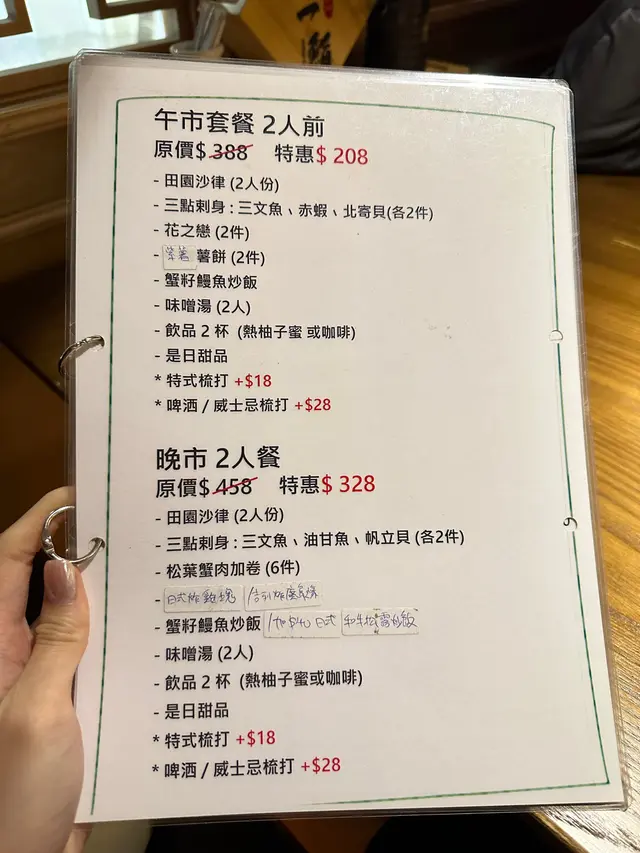 午市套餐 2人前
原價$388 特惠$ 208
- 田園沙律 (2人份)
- 三點剌身 : 三文魚、赤蝦、北寄貝(各2件)
- 花之戀 (2件)
- 紫薯 薯餅 (2件)
- 蟹籽鰻魚炒飯
- 味噌湯 (2人)
- 飲品 2 杯 (熱柚子蜜 或咖啡)
- 是日甜品
* 特式梳打 +$18
* 啤酒 / 威士忌梳打 +$28
晚市 2人餐
原價$458 特惠$ 328
- 田園沙律 (2人份)
- 三點剌身 : 三文魚、油甘魚、帆立貝 (各2件)
- 松葉蟹肉加卷 (6件)
- 日式炸雞塊
- 蟹籽鰻魚炒飯 /加$40 日式
- 味噌湯 (2人)
- 飲品 2 杯 (熱柚子蜜或咖啡)
- 是日甜品
* 特式梳打 +$18
* 啤酒 / 威士忌梳打 +$28